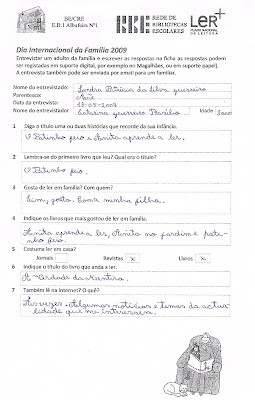 BE/CRE
E.B.1 Albufeira Nº1
REDE DE
BIBLIOTECAS
ESCOLARES
LeR+
PLANO NACIONAL
DE LEITURA
Dia Internacional da Família 2009
Entrevistar um adulto da família e escrever as respostas na ficha as respostas podem
ser registadas em suporte digital, por exemplo no Magalhães, ou em suporte papel).
A entrevista também pode ser enviada por email para um familiar.
Nome do entrevistado: Sandra Patrícia da Silva guerreiro
Parentesco: Mãe
Data da entrevista: 13-05-2009
Nome do entrevistador Catarina guerreiro Basílio Idade 8 anos
1 Diga o título uma ou duas histórias que recorde da sua infância.
O Patinho feio e Anita aprende a ler.
2 Lembra-se do primeiro livro que leu? Qual era o título?
O Patinho feio.
3 Gosta de ler em família? Com quem?
Sim, gosto. Com a minha filha.
4 Indique os livros que mais gostou de ler em família.
Anita aprende a ler, Anita no jardim e pati-
nho feio.
5 Costuma ler em casa?
Jornais Revistas x Livros x
6 Indique o título do livro que anda a ler.
A Verdade da Mentira.
7 Também lê na Internet? O quê?
Às vezes. Algumas notícias e temas da actua-
lidade que me interessem.